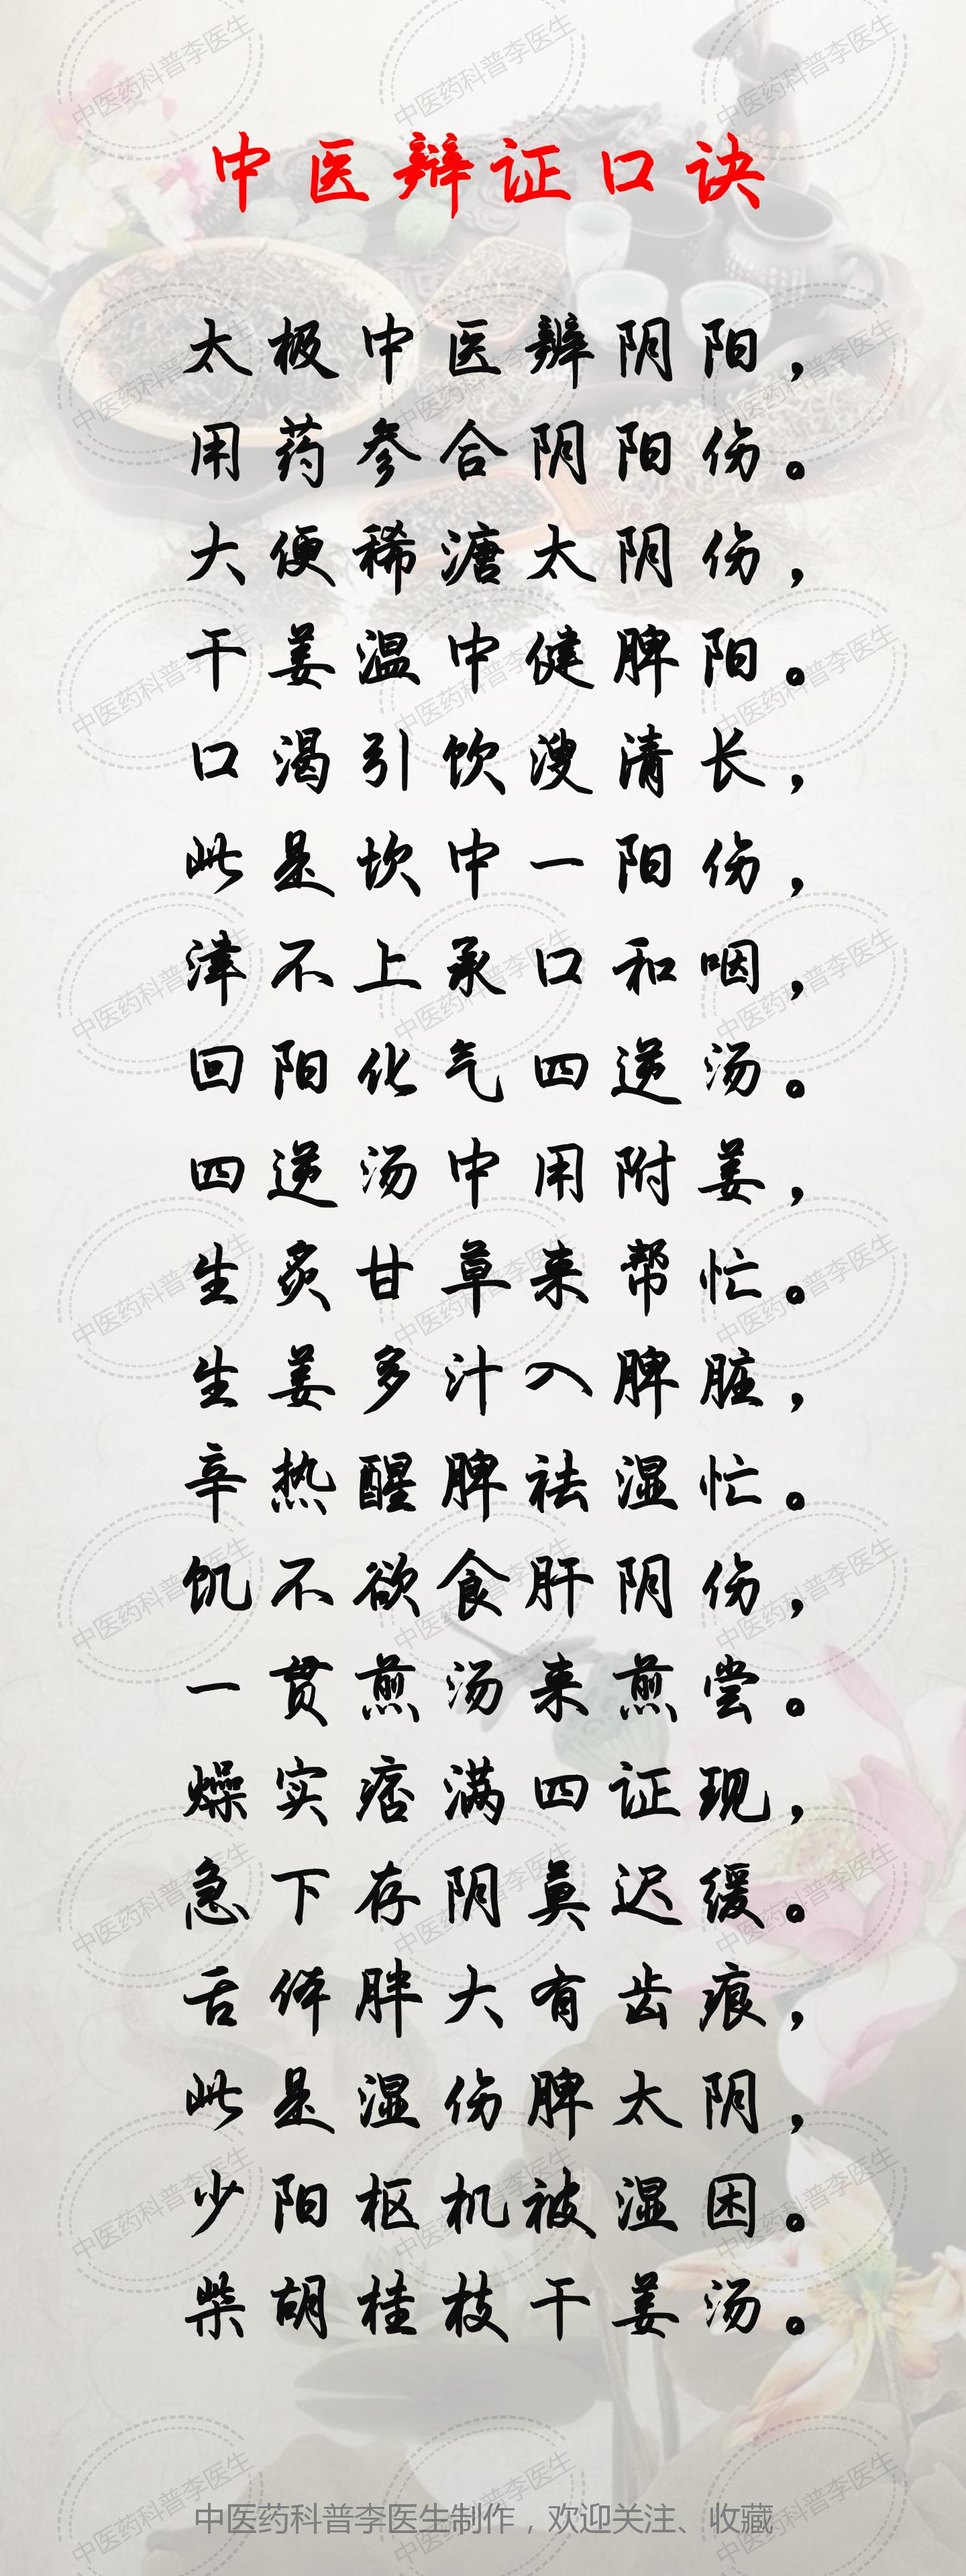 中医辩证口诀
太极中医辨阴阳，
用药参合阴阳伤。
大便稀溏太阴伤，
干姜温中健脾阳。
口渴引饮溲清长，
此是坎中一阳伤，
津不上承口和咽，
回阳化气四逆汤。
四逆汤中用附姜，
生炙甘草来帮忙。
生姜多汁入脾脏，
辛热醒脾祛湿忙。
饥不欲食肝阴伤，
一贯煎汤来煎尝。
燥实痞满四证现，
急下存阴莫迟缓。
舌体胖大有齿痕，
此是湿伤脾太阴，
少阳枢机被湿困。
柴胡桂枝干姜汤。
中医药科普李医生制作，欢迎关注、收藏
中医药科普李医生